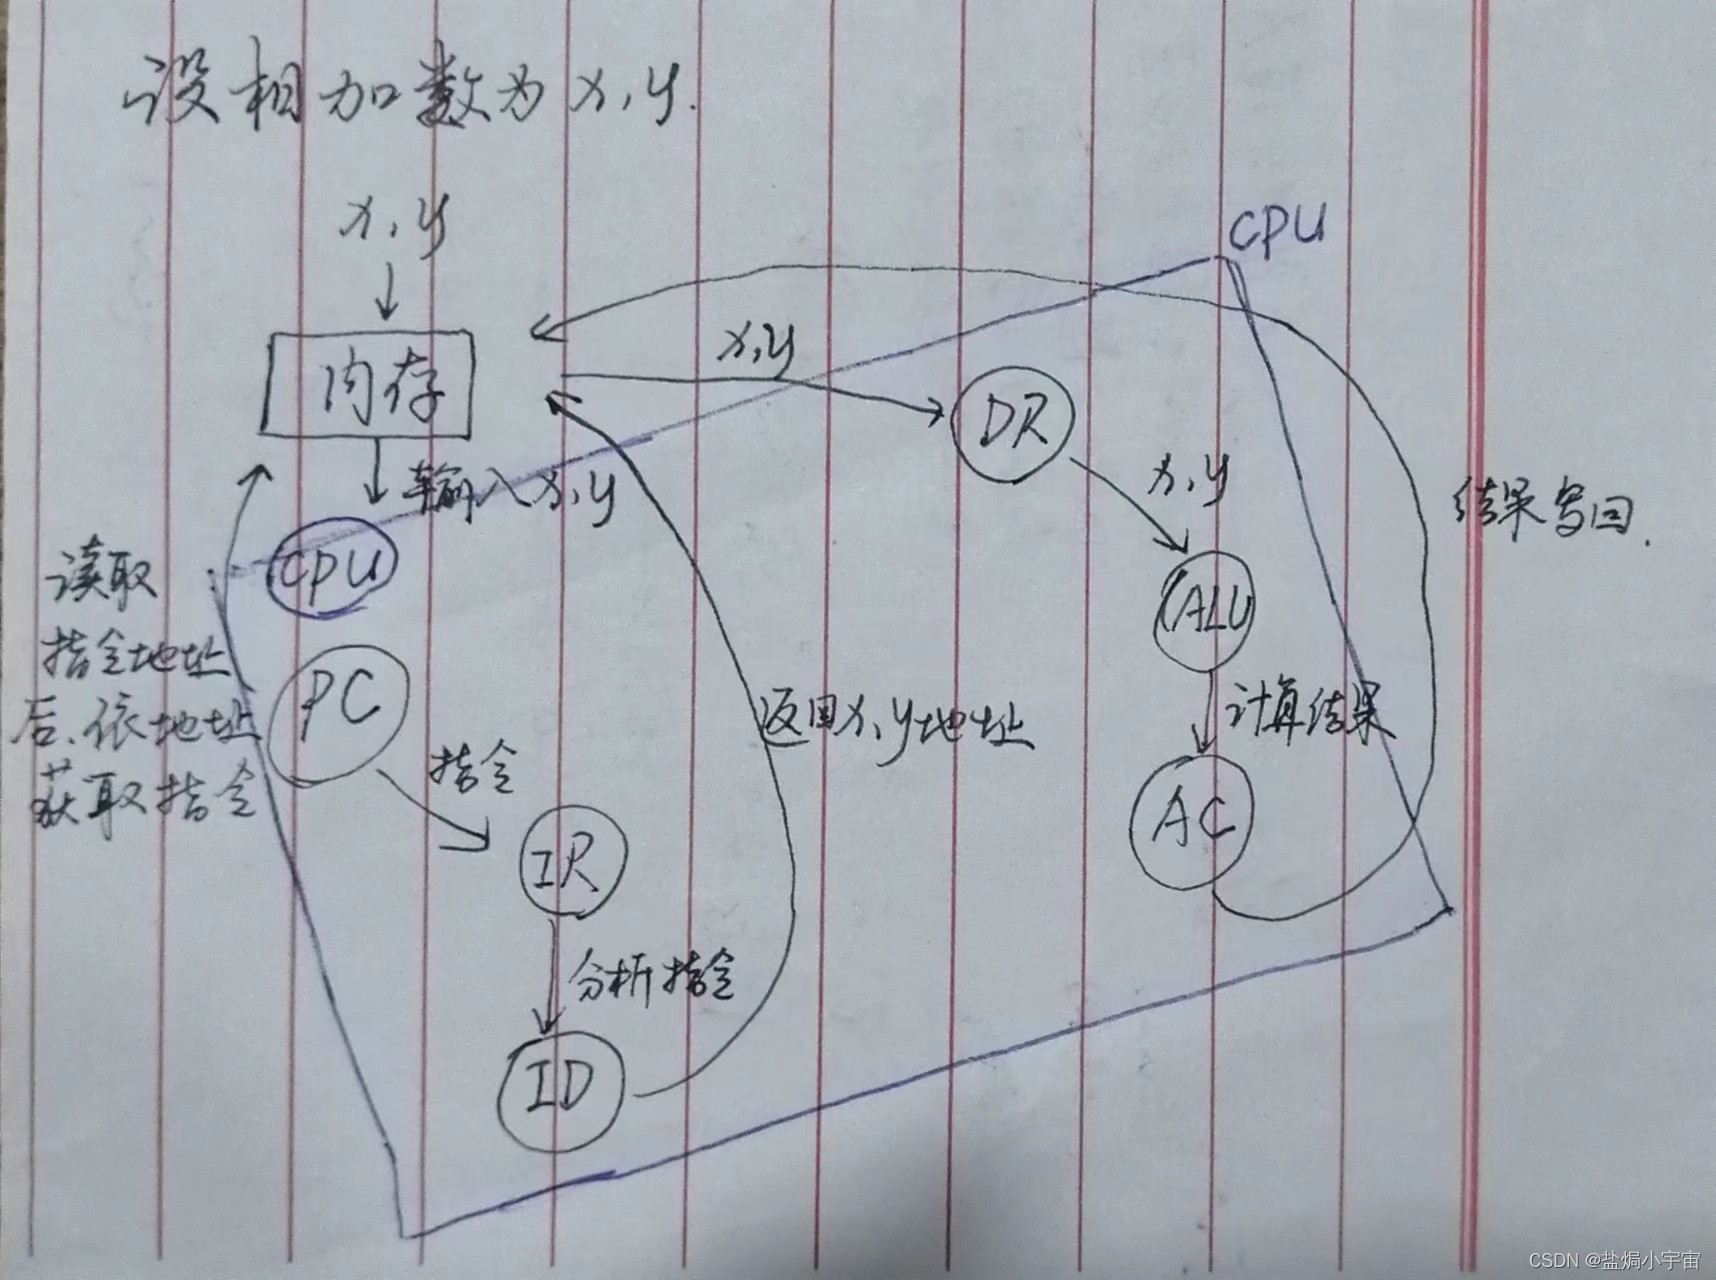 设相加数为x,y.
x,y
CPU
内存
x,y
DR
输入x,y
x,y
结果写回.
CPU
ALU
读取
指令地址
后、依地址
获取指令
PC
指令
返回x,y地址
计算结果
IR
AC
分析指令
ID
CSDN @盐焗小宇宙